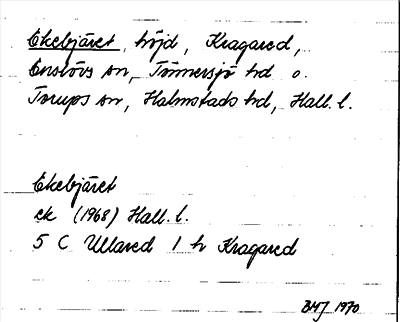 Ekebjäret, höjd, Kragared,
Enslövs sn, Tönnersjö hd o.
Torups sn, Halmstads hd, Hall. l.
Ekebjäret
ek (1968) Hall. l.
5 C Ullared 1 h Kragared
BMJ 1970